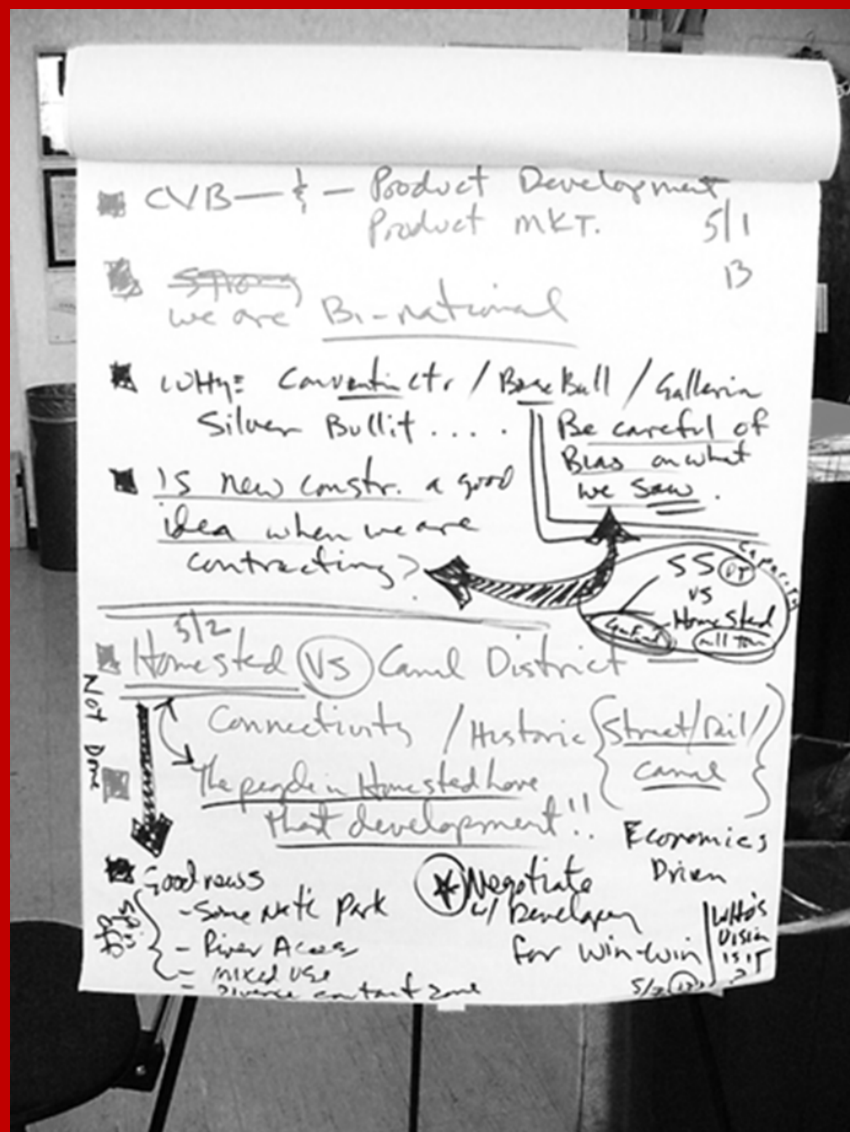 CVB — & — Product Development
Product MKT.
5/1
13
Strong
we are Bi-national
WHY: Convention ctr / Base Ball / Galleria
Silver Bullit . . . .
Be careful of
Bias on what
we saw.
Is new constr. a good
idea when we are
contracting?
Capacity
SS DT
vs
Homested
mill town
5/2
Homested VS Canal District
NOT Done
Connectivity / Historic {Street/Rail/
Canal}
The people in Homested have
that development!!
Economics
Driven
Good news
- Some Park
- River Access
- mixed use
- Diverse contact zone
* Negotiate
w/ Developer
for win-win
Who's
Vision
is it
?